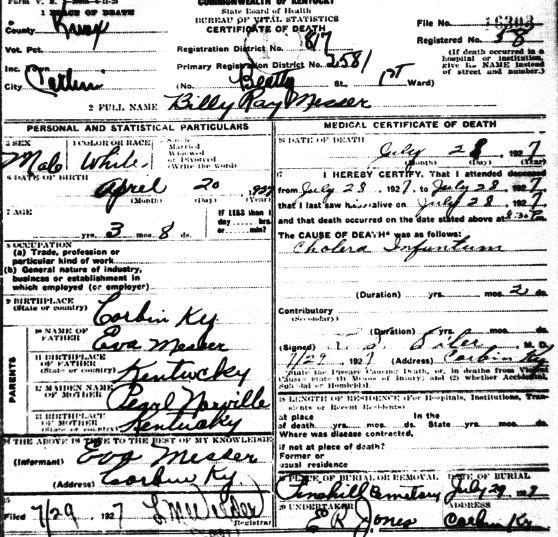 COMMONWEALTH OF KENTUCKY
State Board of Health
BUREAU OF VITAL STATISTICS
CERTIFICATE OF DEATH
1 PLACE OF DEATH
County Knox
File No. 16303
Registration District No. 817
Registered No. 58
Vot. Pct.
Primary Registration District No. 2581
(If death occurred in a hospital or institution, give its NAME instead of street and number.)
Inc. Town
City Corbin (No. Beatty St., 1st Ward)
2 FULL NAME Billy Ray Messer
PERSONAL AND STATISTICAL PARTICULARS
3 SEX Male
4 COLOR OR RACE White
5 Single Married Widowed or Divorced (Write the word)
6 DATE OF BIRTH April 20, 1927
(Month) (Day) (Year)
7 AGE yrs. 3 mos. 8 ds.
IF LESS than 1 day ... hrs. or ... min.?
8 OCCUPATION
(a) Trade, profession or particular kind of work
(b) General nature of industry, business or establishment in which employed (or employer)
9 BIRTHPLACE (State or country) Corbin Ky.
PARENTS
10 NAME OF FATHER Eva Messer
11 BIRTHPLACE OF FATHER (State or country) Kentucky
12 MAIDEN NAME OF MOTHER
13 BIRTHPLACE OF MOTHER (State or country) Kentucky
14 THE ABOVE IS TRUE TO THE BEST OF MY KNOWLEDGE
(Informant) Eva Messer
(Address) Corbin Ky.
15
Filed 7/29 1927
Registrar
MEDICAL CERTIFICATE OF DEATH
16 DATE OF DEATH July 28, 1927
(Month) (Day) (Year)
17 I HEREBY CERTIFY, That I attended deceased
from July 28 1927, to July 28 1927
that I last saw h alive on July 28 1927
and that death occurred on the date stated above at 8:30 P.m.
The CAUSE OF DEATH* was as follows:
Cholera Infantum
(Duration) yrs. mos. 2 ds.
Contributory
(Secondary)
(Duration) yrs. mos. ds.
(Signed) M. D.
7/29 1927 (Address) Corbin Ky
*State the Disease Causing Death, or, in deaths from Violent Causes state (1) Means of Injury; and (2) whether Accidental, Suicidal or Homicidal.
18 LENGTH OF RESIDENCE (For Hospitals, Institutions, Transients or Recent Residents)
At place of death yrs. mos. ds.
In the State yrs. mos. ds.
Where was disease contracted, if not at place of death?
Former or usual residence
19 PLACE OF BURIAL OR REMOVAL Pinehill Cemetery
DATE OF BURIAL July 29 1927
20 UNDERTAKER E R Jones
ADDRESS Corbin Ky.